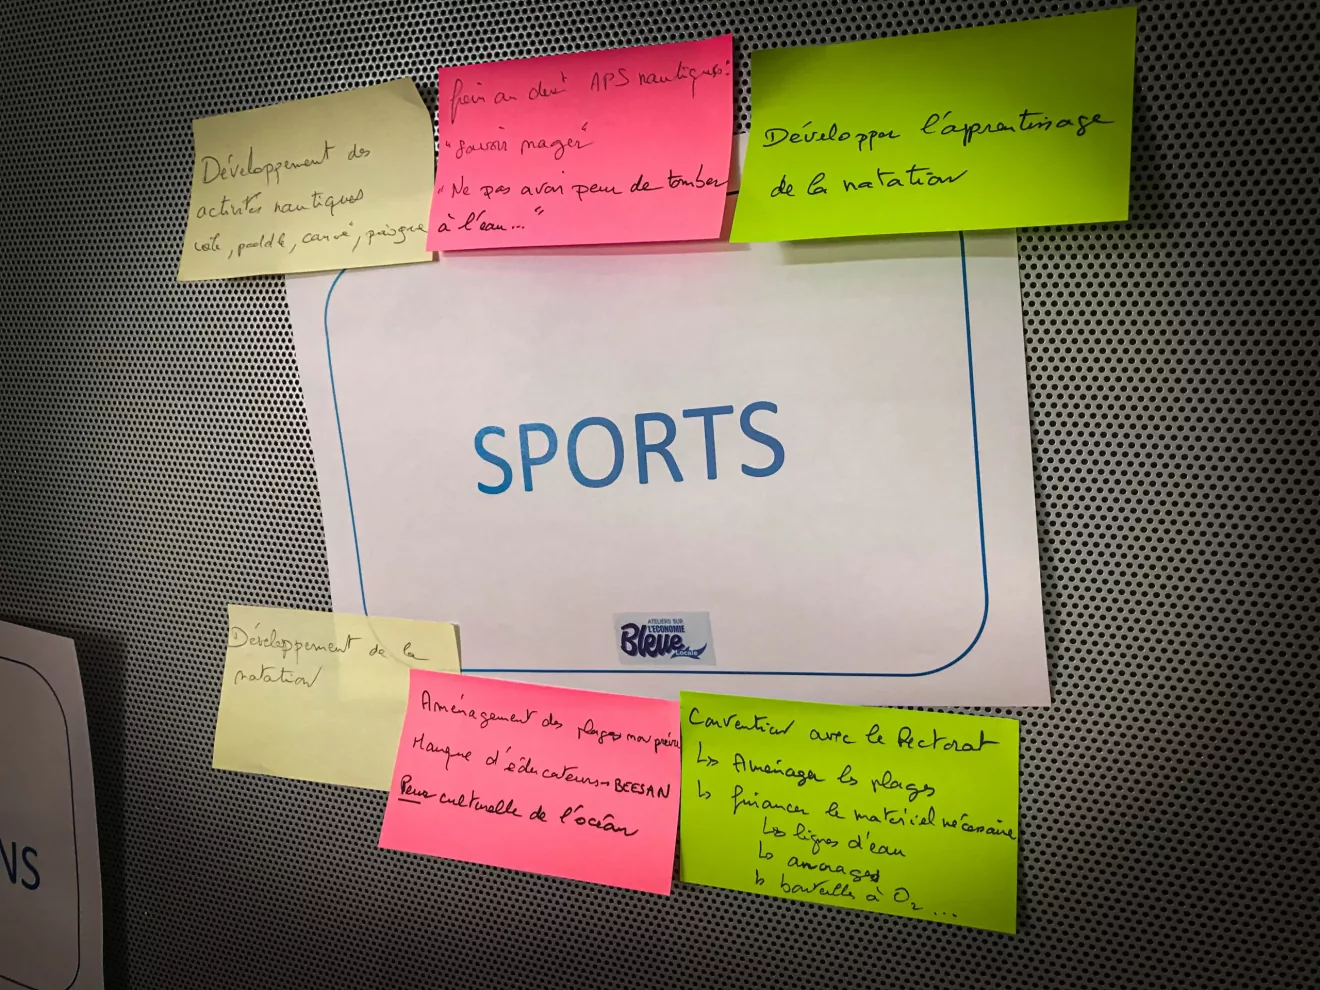 Développement des
activités nautiques
voile, paddle, canoë, pirogue
frein au devt APS nautiques:
"Savoir nager"
"Ne pas avoir peur de tomber
à l'eau..."
Développer l'apprentissage
de la natation
SPORTS
ATELIERS SUR
L'ECONOMIE
Bleue
Locale
Développement de la
natation
Aménagement des plages non prévu
Manque d'éducateurs → BEESAN
Peur culturelle de l'océan
Convention avec le Rectorat
↳ Aménager les plages
↳ financer le matériel nécessaire
↳ lignes d'eau
↳ ancrages
↳ bouteille à O₂ ...
NS